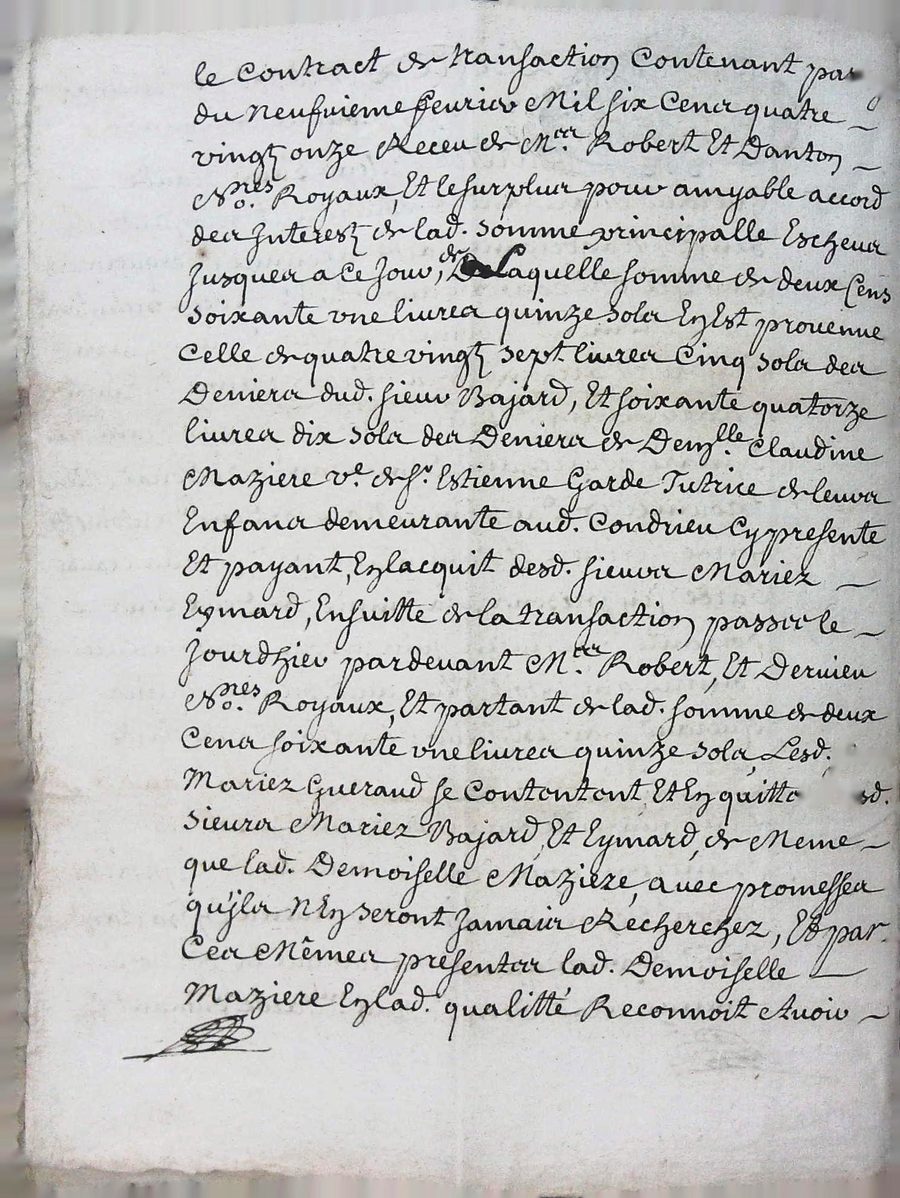 le Contract de transaction Contenant par
du neufvieme feurier Mil six Cens quatre
vingt onze Receu de M.es Robert Et Danton
No.res Royaux, Et le surplus pour amyable accord
des Interest de lad. somme principalle Escheus
Jusques a Ce Jour, de Laquelle somme de deux Cens
soixante vne liures quinze sols En Est prouenue
Celle de quatre vingt sept liures Cinq sols des
Deniers dud. sieur Bajard, Et soixante quatorze
liures dix sols des Deniers de Dem.lle Claudine
Maziere v.e de s.r Estienne Garde Tutrice de leurs
Enfans demeurante aud. Condrieu Cy presente
Et payant, En lacquit desd. sieurs Mariez
Eymard, Ensuitte de la transaction passee le
Jourdhier pardevant M.es Robert, Et Dervieu
No.res Royaux, Et partant de lad. somme de deux
Cens soixante vne liures quinze sols, Lesd.
Mariez Gueraud se Contentent Et En quitte sd.
sieurs Mariez Bajard, Et Eymard, de Meme
que lad. Demoiselle Maziere, avec promesses
qu'jls n'En seront Jamais Recherchez, Et par
Ces Mêmes presentes lad. Demoiselle
Maziere En lad. qualitté Reconnoit Auoir